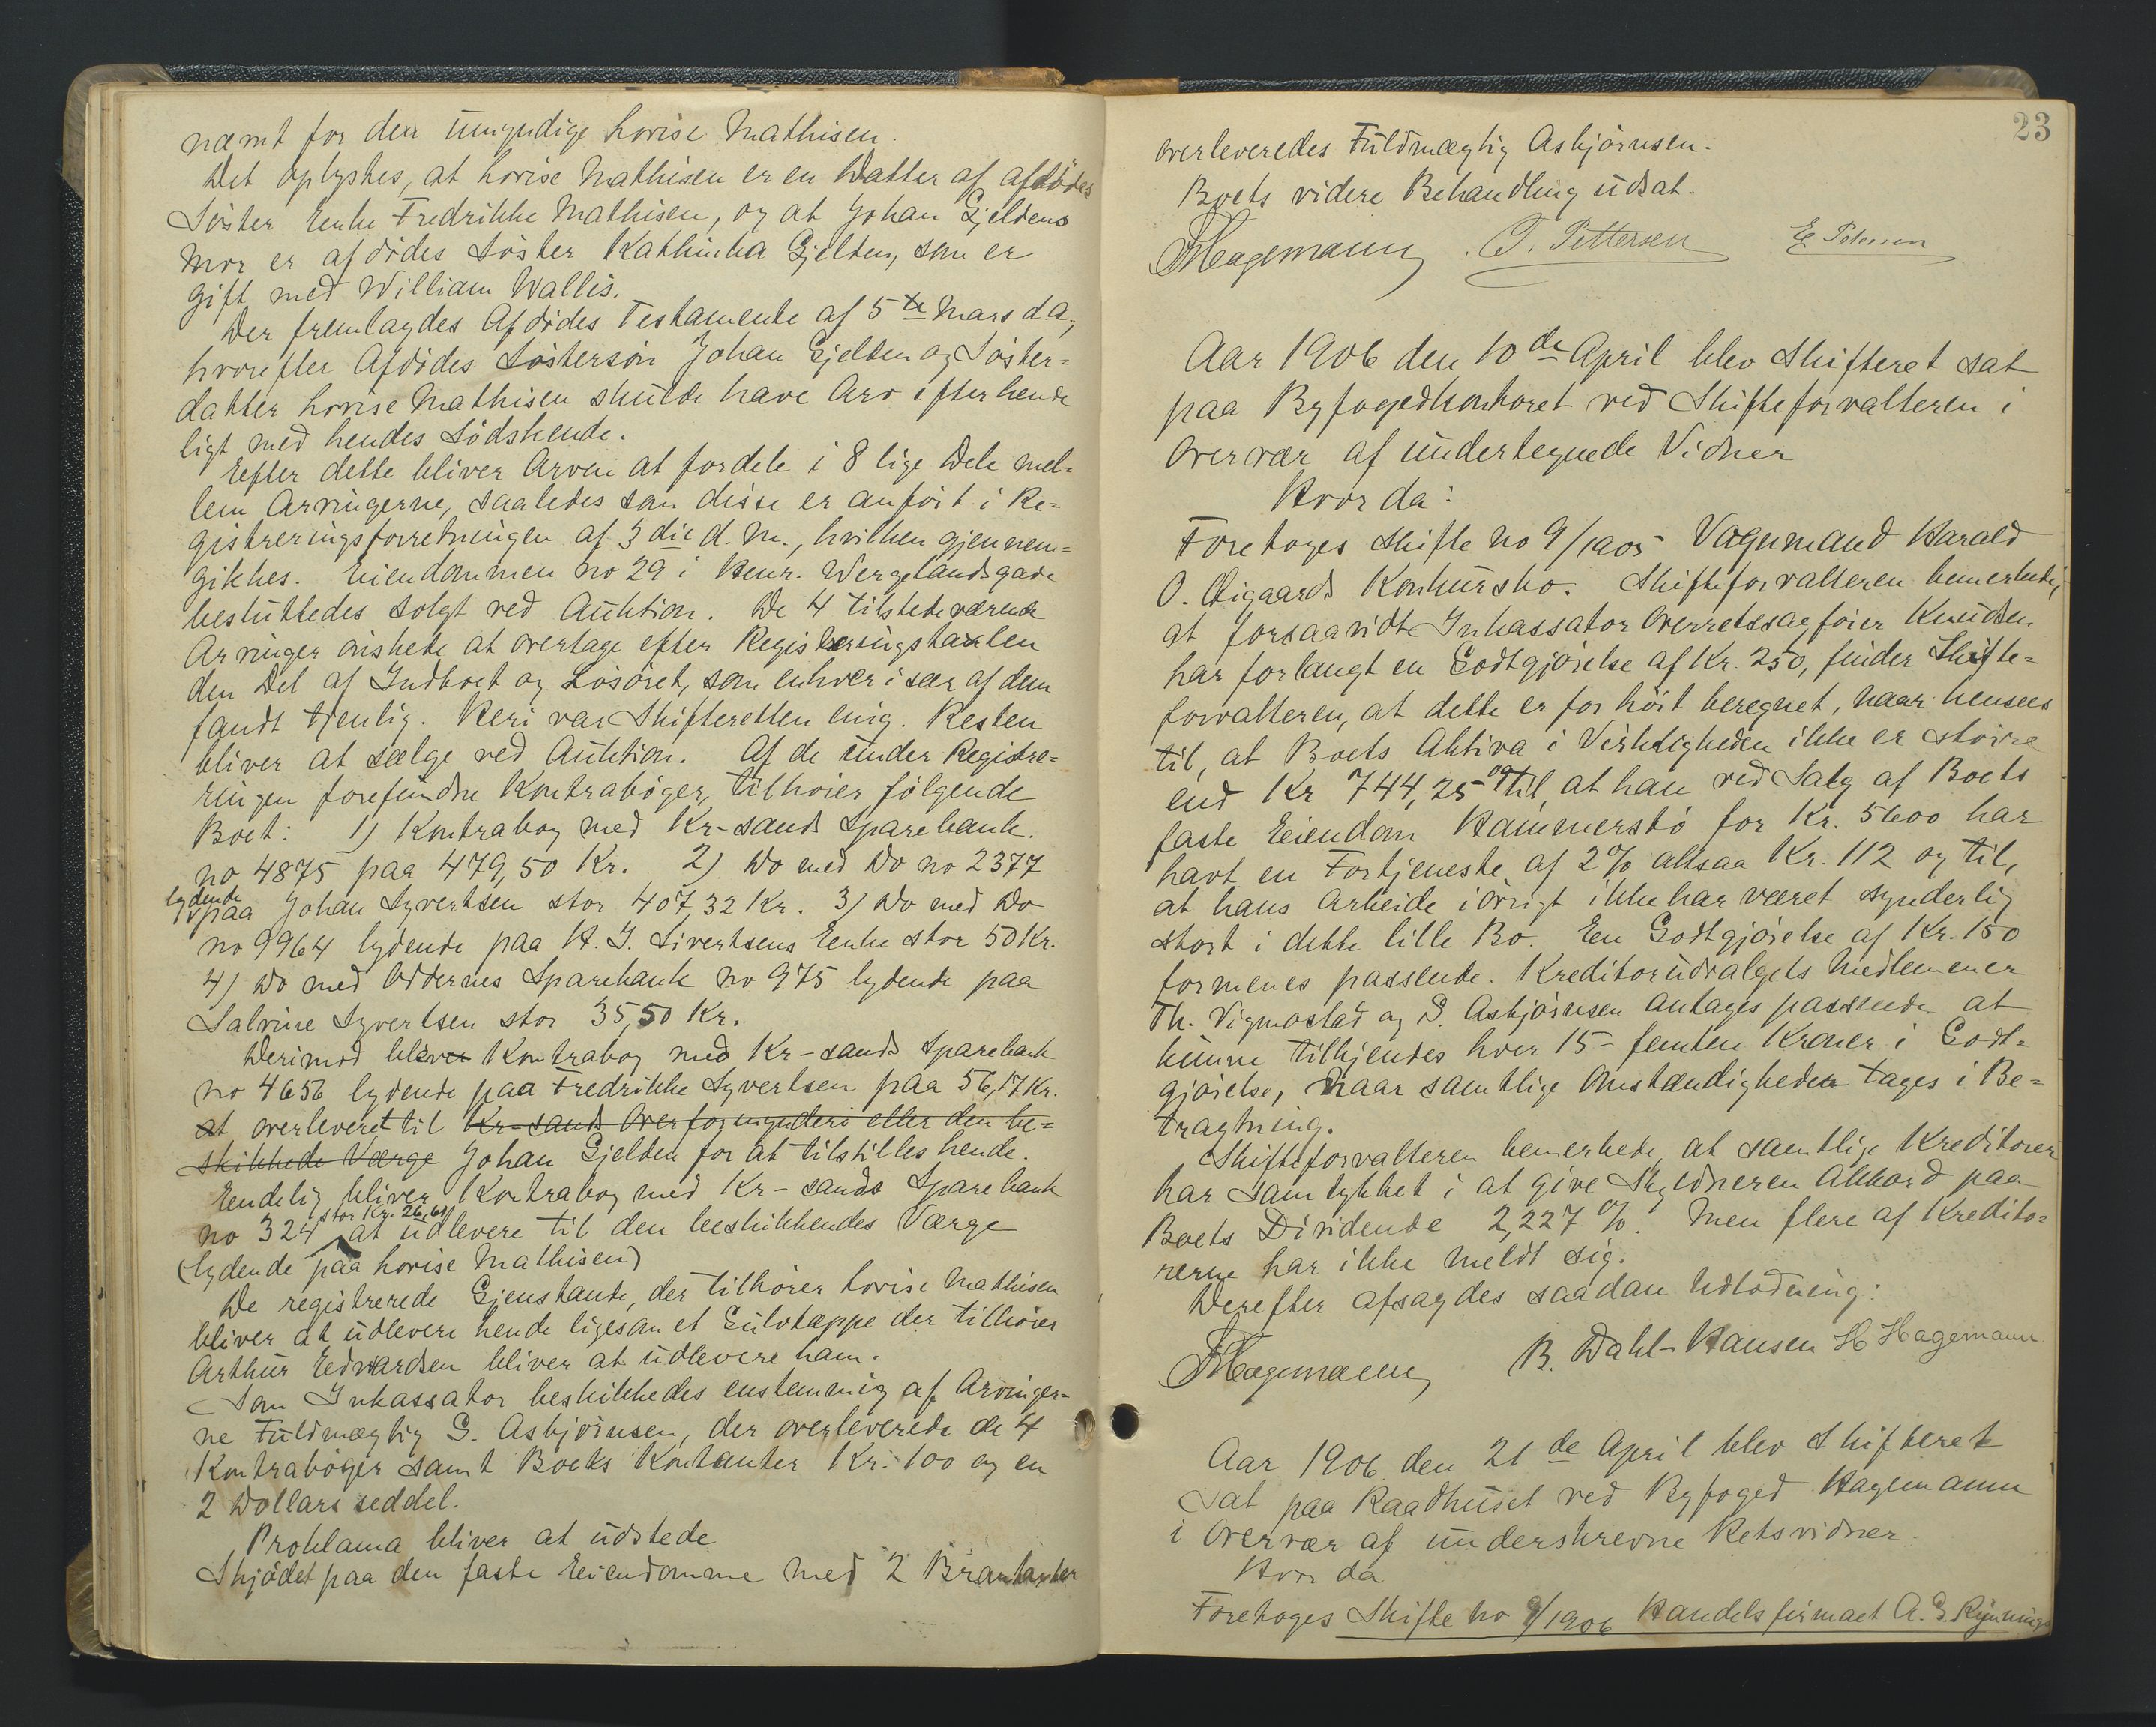 næmt for den umyndige Lovise Mathisen.
Det oplystes, at Lovise Mathisen er en Datter af afdödes
Söster Enke Fredrikke Mathisen, og at Johan Gjeldens
Mor er afdödes Söster Kathinka Gjelden, som er
gift med William Wallis.
Der fremlagdes Afdödes Testamente af 5te Mars d A,
hvorefter Afdödes Söstersön Johan Gjelden og Söster=
datter Lovise Mathisen skulde have Arv efter hende
ligt med hendes Södskende.
Efter dette bliver Arven at fordele i 8 lige Dele mel=
lem Arvingerne, saaledes som disse er anfört i Re=
gistreringsforretningen af 3die d. M., hvilken gjennem=
gikkes. Eiendommen no 29 i Henr. Wergelandsgade
besluttedes solgt ved Auktion. De 4 tilstedeværende
Arvinger önskede at overtage efter Registreringstaxten
den Del af Indboet og Lösöret, som enhver især af dem
fandt tjenlig. Heri var Skifteretten enig. Resten
bliver at sælge ved Auktion. Af de under Registre=
ringen forefundne Kontraböger, tilhörer fölgende
Boet: 1) Kontrabog med Kr-sands Sparebank.
no 4875 paa 479,50 Kr. 2) Do med Do no 2377
lydende paa Johan Syvertsen stor 407,32 Kr. 3) Do med Do
no 9964 lydende paa H. J. Sivertsens Enke stor 50 Kr.
4) Do med Oddernes Sparebank no 975 lydende paa
Salvine Syvertsen stor 35,50 Kr.
Derimod bliver Kontrabog med Kr-sands Sparebank
no 4656 lydende paa Fredrikke Syvertsen paa 56,17 Kr.
at overleveret til Kr-sands Overformynderi eller den be=
skikkede Værge Johan Gjelden for at tilstilles hende.
Endelig bliver Kontrabog med Kr-sands Sparebank
no 324 stor Kr. 26,61 at udlevere til den beskikkendes Værge
(lydende paa Lovise Mathisen)
De registrerede Gjenstande, der tilhörer Lovise Mathisen
bliver at udlevere hende ligesom et Gulvtæppe der tilhörer
Arthur Edwardsen bliver at udlevere ham.
Som Inkassator beskikkedes enstemmig af Arvinger=
ne Fuldmægtig G. Asbjörnsen, der overleverede de 4
Kontraböger samt Boets Kontanter Kr. 100 og en
2 Dollars seddel.
Proklama bliver at udstede
Skjödet paa den faste Eiendomme med 2
23
overleveredes Fuldmægtig Asbjörnsen.
Boets videre Behandling udsat.
Hagemann T. Pettersen E Petersen
Aar 1906 den 10de April blev Skifteret sat
paa Byfogedkontoret ved Skifteforvalteren i
Overvær af undertegnede Vidner
Hvor da:
Foretoges Skifte no 9/1905 Vognmand Harald
O. Aigaards Konkursbo. Skifteforvalteren bemerkede,
at forsaavidt Inkassator Overretssagförer Knudsen
har forlangt en Godtgjörelse af Kr. 250, finder Skifte=
forvalteren, at dette er for höit beregnet, naar hensees
til, at Boets Aktiva i Virkeligheden ikke er större
end Kr 744,25 og til, at han ved Salg af Boets
faste Eiendom Hammersbö for Kr. 5600 har
havt en Fortjeneste af 2% altsaa Kr. 112 og til,
at hans Arbeide iövrigt ikke har været synderlig
stort i dette lille Bo. En Godtgjörelse af Kr. 150
formenes passende. Kreditorudvalgets Medlemmer
Th. Vigmostad og G. Asbjörnsen antages passende at
kunne tilkjendes hver 15 - femten Kroner i Godt=
gjörelse, naar samtlige Omstændigheder tages i Be=
tragtning.
Skifteforvalteren bemerkede, at samtlige Kreditorer
har samtykket i at give Skyldneren Akkord paa
Boets Dividende 2,227 %. Men flere af Kredito=
rerne har ikke meldt sig.
Derefter afsagdes saadan Udlodning:
Hagemann B. Dahl-Hansen H Hagemann
Aar 1906 den 21de April blev Skifteret
sat paa Raadhuset ved Byfoged Hagemann
i Overvær af underskrevne Retsvidner.
Hvor da
Foretoges Skifte no 9/1906 Handelsfirmaet A. G. Rynnings